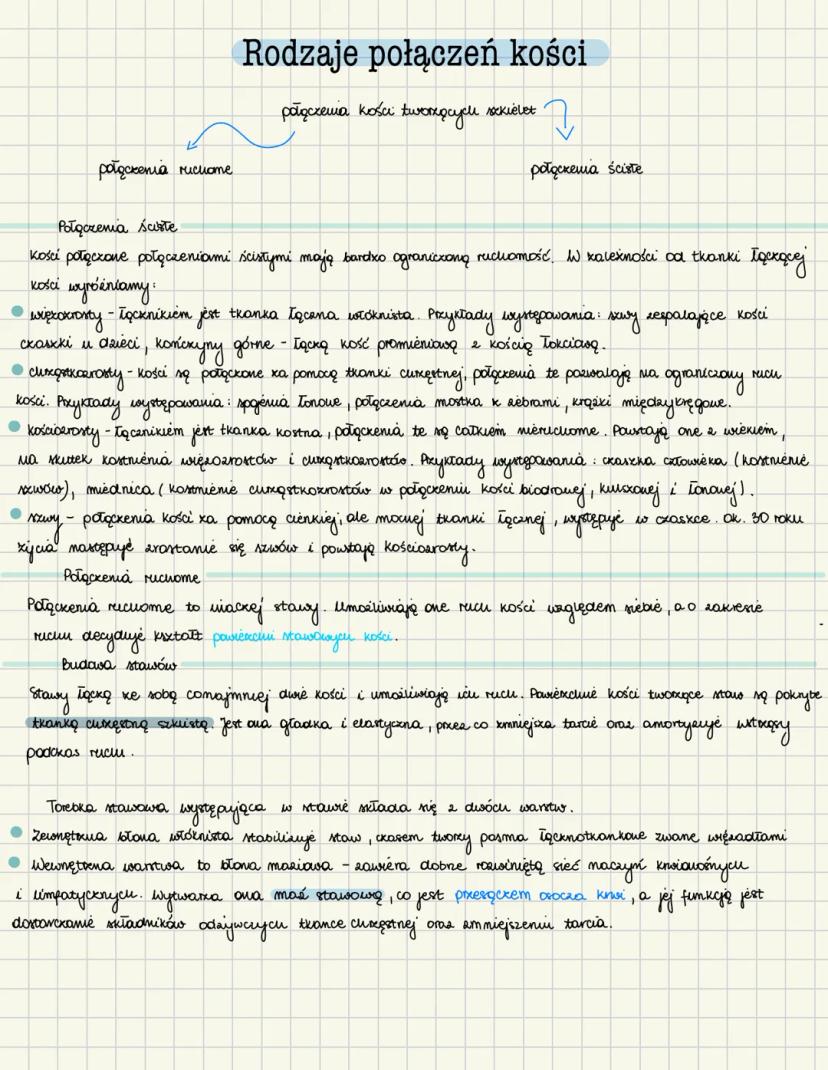 Rodzaje połączeń kości
połączenia kości tworzących szkielet
połączenia ruchome połączenia ścisłe
Połączenia ścisłe
Kości połączone połączeniami ścisłymi mają bardzo ograniczoną ruchomość. W zależności od tkanki łączącej
kości wyróżniamy:
więzozrosty - łącznikiem jest tkanka łączna włóknista. Przykłady występowania: szwy zespalające kości
czaszki u dzieci, kończyny górne - łączą kość promieniową z kością łokciową.
chrząstkozrosty - kości są połączone za pomocą tkanki chrzęstnej, połączenia te pozwalają na ograniczony ruch
kości. Przykłady występowania: spojenia łonowe, połączenia mostka z żebrami, krążki międzykręgowe.
kościozrosty - łącznikiem jest tkanka kostna, połączenia te są całkiem nieruchome. Powstają one z wiekiem,
na skutek kostnienia więzozrostów i chrząstkozrostów. Przykłady występowania: czaszka człowieka (kostnienie
szwów), miednica (kostnienie chrząstkozrostów w połączeniu kości biodrowej, kulszowej i łonowej).
szwy - połączenia kości za pomocą cienkiej, ale mocnej tkanki łącznej, występuje w czaszce. Ok. 30 roku
życia następuje zrastanie się szwów i powstają kościozrosty.
Połączenia ruchome
Połączenia ruchome to inaczej stawy. Umożliwiają one ruch kości względem siebie, a o zakresie
ruchu decyduje kształt powierzchni stawowych kości.
Budowa stawów
Stawy łączą ze sobą conajmniej dwie kości i umożliwiają ich ruch. Powierzchnie kości tworzące staw są pokryte
tkanką chrzęstną szklistą. Jest ona gładka i elastyczna, przez co zmniejsza tarcie oraz amortyzuje wstrząsy
podczas ruchu.
Torebka stawowa występująca w stawie składa się z dwóch warstw.
Zewnętrzna błona włóknista stabilizuje staw, czasem tworzy pasma łącznotkankowe zwane więzadłami
Wewnętrzna warstwa to błona maziowa - zawiera dobrze rozwiniętą sieć naczyń krwionośnych
i limfatycznych. Wytwarza ona maź stawową, co jest przesączem osocza krwi, a jej funkcją jest
dostarczanie składników odżywczych tkance chrzęstnej oraz zmniejszeniu tarcia.